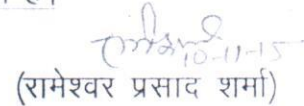 10-11-15
(रामेश्वर प्रसाद शर्मा)